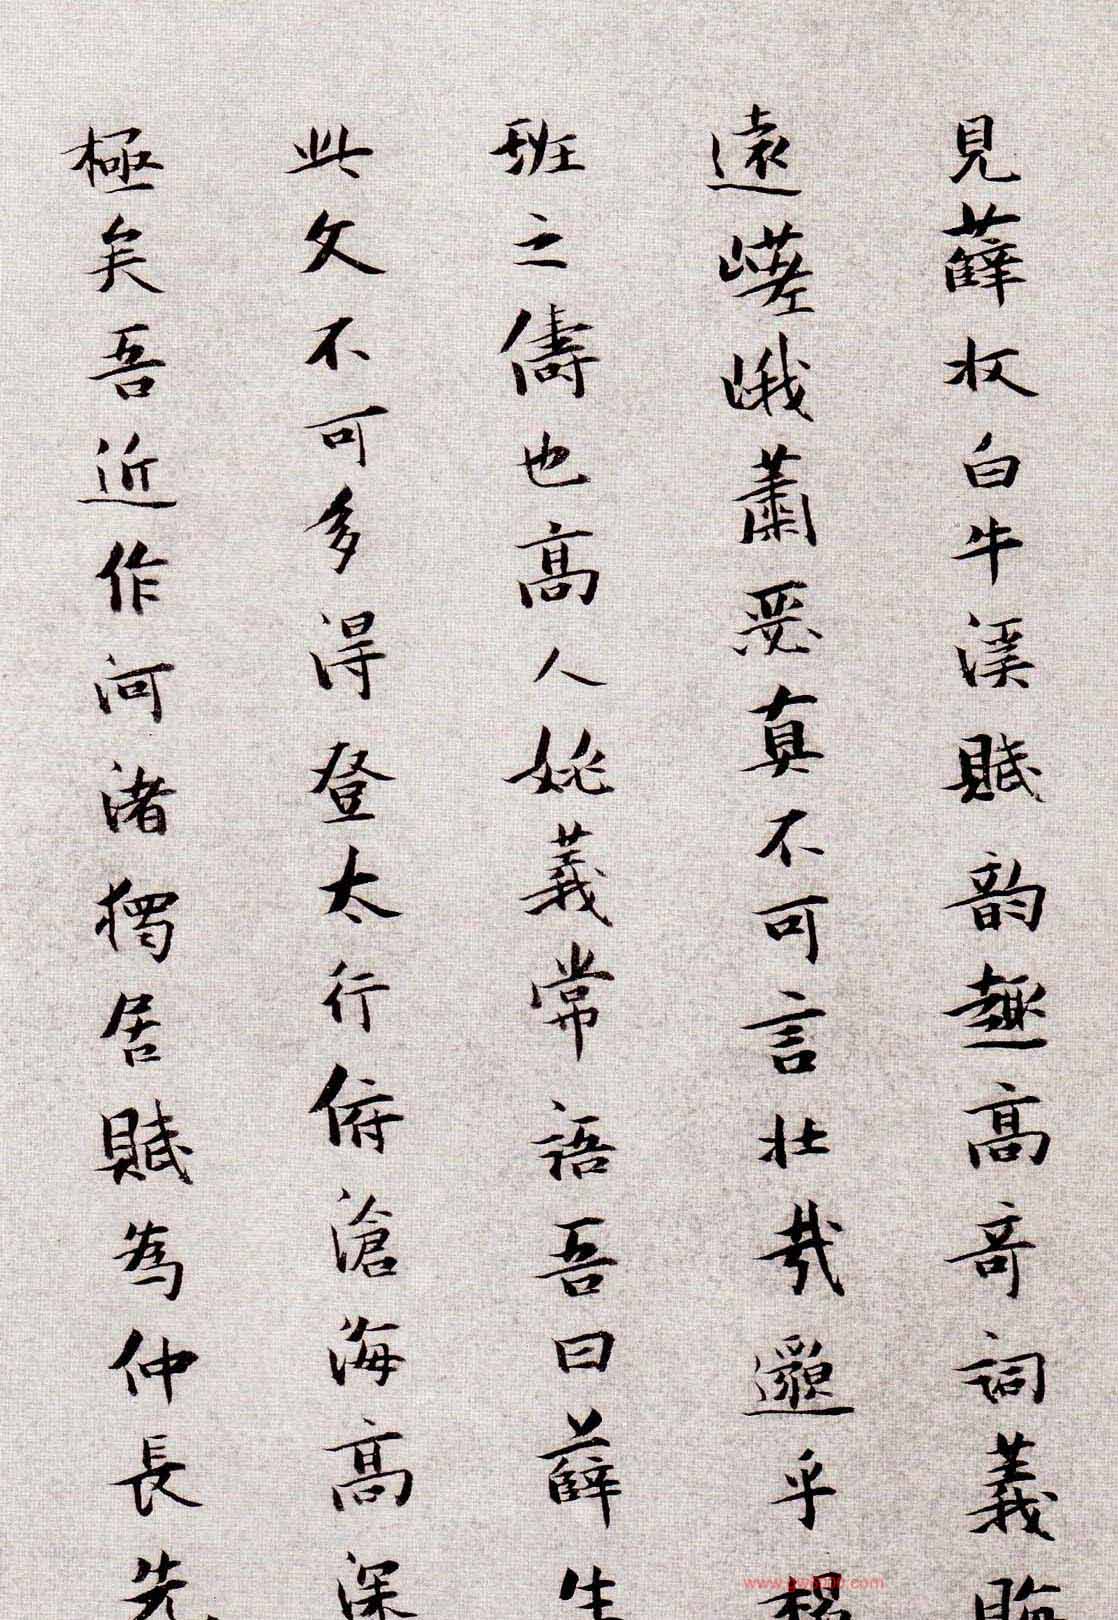 見薛收白牛溪賦韵趣高奇詞義
遠嵯峨蕭瑟真不可言壯哉邈乎揚
班之儔也高人姚義常語吾曰薛生
此文不可多得登太行俯滄海高深
極矣吾近作河渚獨居賦為仲長先